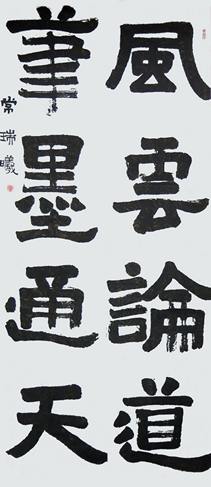 風雲論道
筆墨通天
常瑞曦